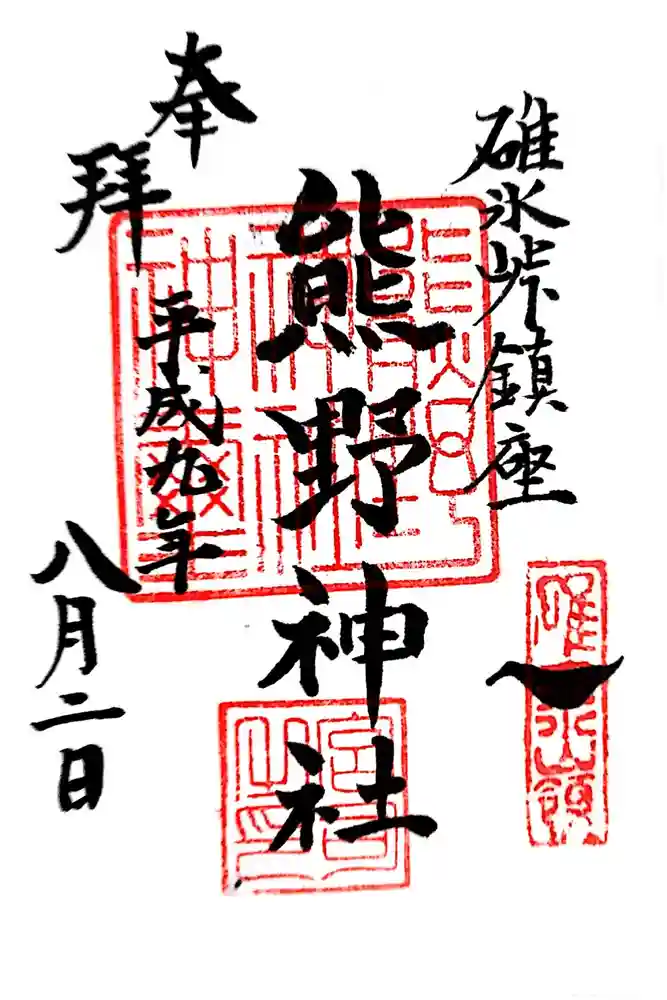 碓氷峠鎮座
熊野神社
奉拝
平成九年
八月二日
宮司
之印